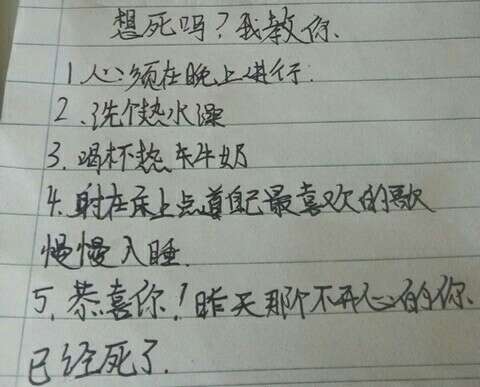 想死吗？我教你、
1、必须在晚上进行：
2、洗个热水澡
3、喝杯热牛奶
4、躺在床上点首自己最喜欢的歌
慢慢入睡.
5、恭喜你！昨天那个不开心的你、
已经死了.